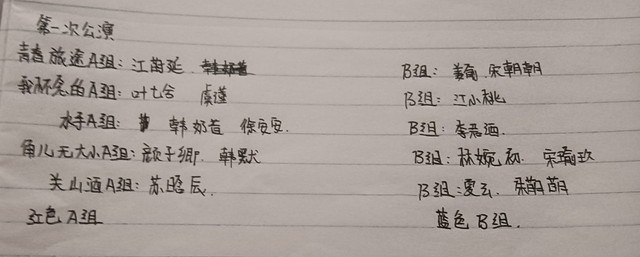 第一次公演
青春旅途A组：江茵延 B组：姜甸 宋朝朝
我怀念的A组：叶七合 虞遥 B组：江小桃
水手A组： 韩奶昔 徐安安 B组：李君酒
角儿无大小A组：颜子卿 韩默 B组：林婉初 宋瑜玖
关山酒A组：苏昭辰 B组：夏云
红色A组 蓝色B组